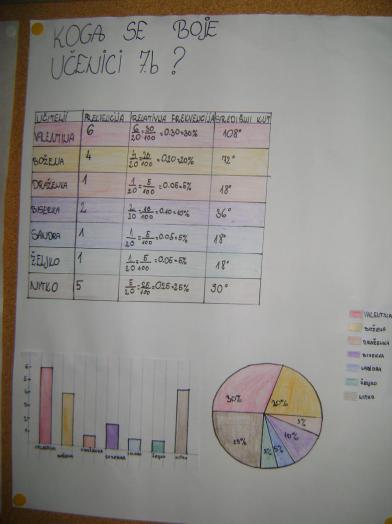 KOGA SE BOJE
UČENICI 7.b ?
UČITELJI FREKVENCIJA RELATIVNA FREKVENCIJA SREDIŠNJI KUT
VALENTINA 6 6/20=30/100=0.30=30% 108°
BOŽENA 4 4/20=20/100=0.20=20% 72°
DRAŽENKA 1 1/20=5/100=0.05=5% 18°
BISERKA 2 2/20=10/100=0.10=10% 36°
SANDRA 1 1/20=5/100=0.05=5% 18°
ŽELJKO 1 1/20=5/100=0.05=5% 18°
NITKO 5 5/20=25/100=0.25=25% 90°
VALENTINA
BOŽENA
DRAŽENKA
BISERKA
SANDRA
ŽELJKO
NITKO
30% 20%
5%
10%
25% 5% 5%
VALENTINA BOŽENA DRAŽENKA BISERKA SANDRA ŽELJKO NITKO